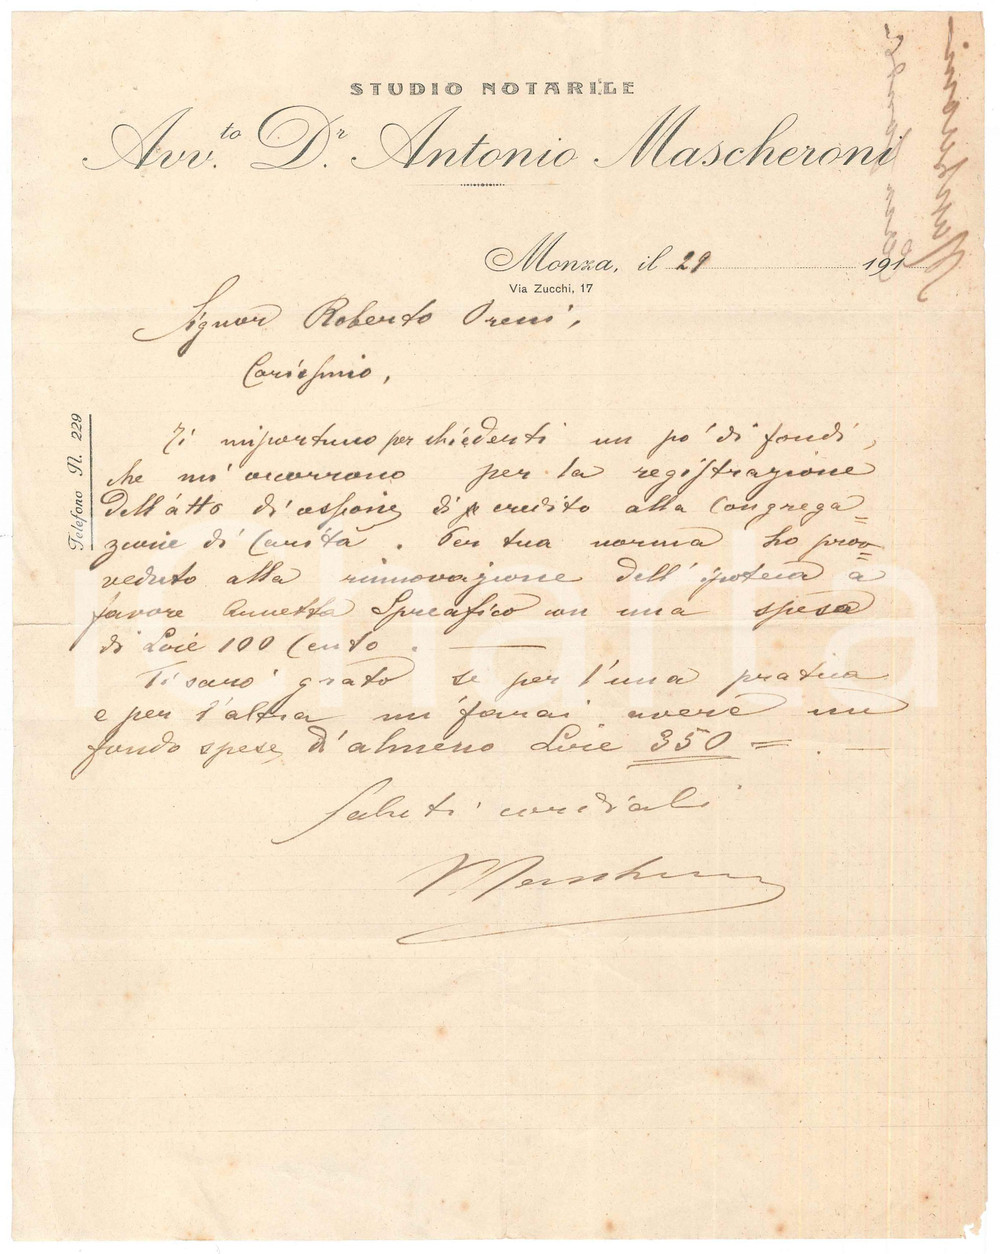 STUDIO NOTARILE
Avv.to D.r Antonio Mascheroni
Monza, il 29 191
Via Zucchi, 17
Telefono N. 229
Signor Roberto Preni,
Carissimo,
Ti importuno per chiederti un po' di fondi,
che mi occorrono per la registrazione
dell'atto di cessione di credito alla Congrega=
zione di Carità. Per tua norma ho prov=
veduto alla rinnovazione dell'ipoteca a
favore Annetta Spreafico con una spesa
di Lire 100 Cento. —
Ti sarò grato se per l'una pratica
e per l'altra mi farai avere un
fondo spese d'almeno Lire 350 = . —
Saluti cordiali
Mascheroni